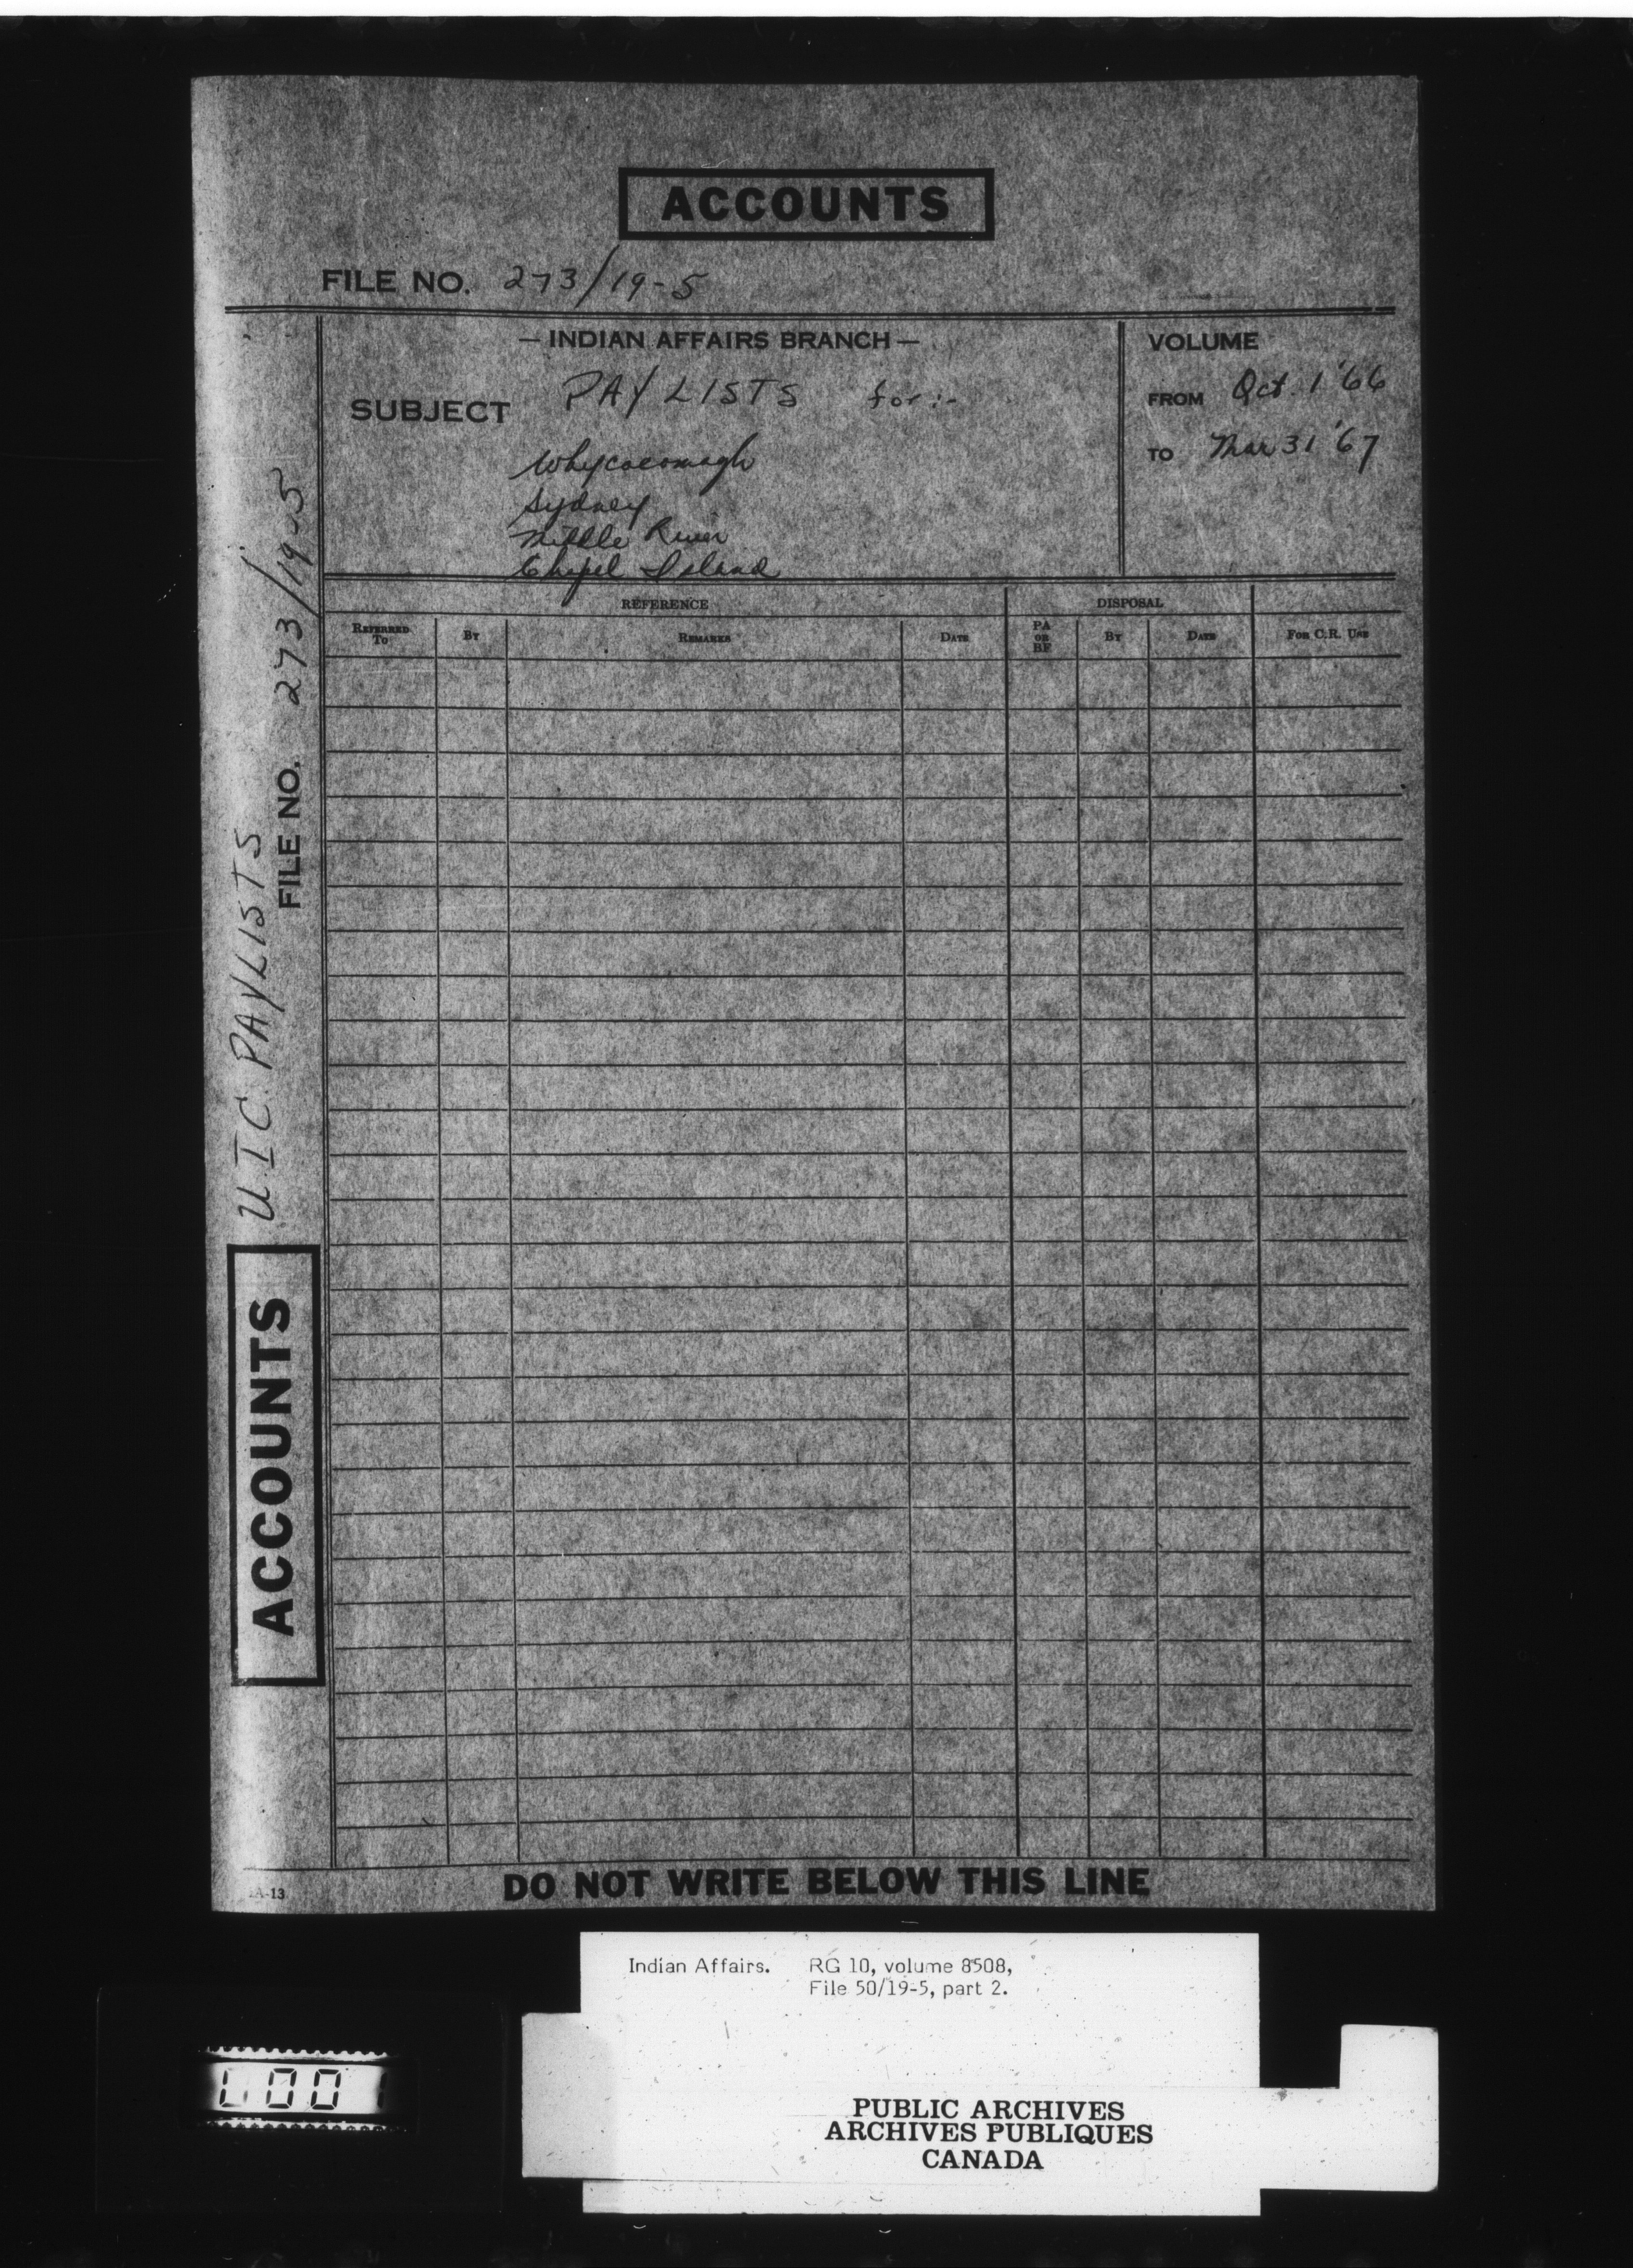 ACCOUNTS
FILE NO. 273/19-5
— INDIAN AFFAIRS BRANCH —
SUBJECT PAY LISTS for:-
Whycocomagh
Sydney
Middle River
Chapel Island
VOLUME
FROM Oct. 1 '66
TO Mar 31 '67
REFERENCE
DISPOSAL
REFERRED TO
BY
REMARKS
DATE
PA OR BF
BY
DATE
FOR C.R. USE
ACCOUNTS
U I C PAYLISTS
FILE NO. 273/19-5
DO NOT WRITE BELOW THIS LINE
A-13
Indian Affairs. RG 10, volume 8508,
File 50/19-5, part 2.
PUBLIC ARCHIVES
ARCHIVES PUBLIQUES
CANADA